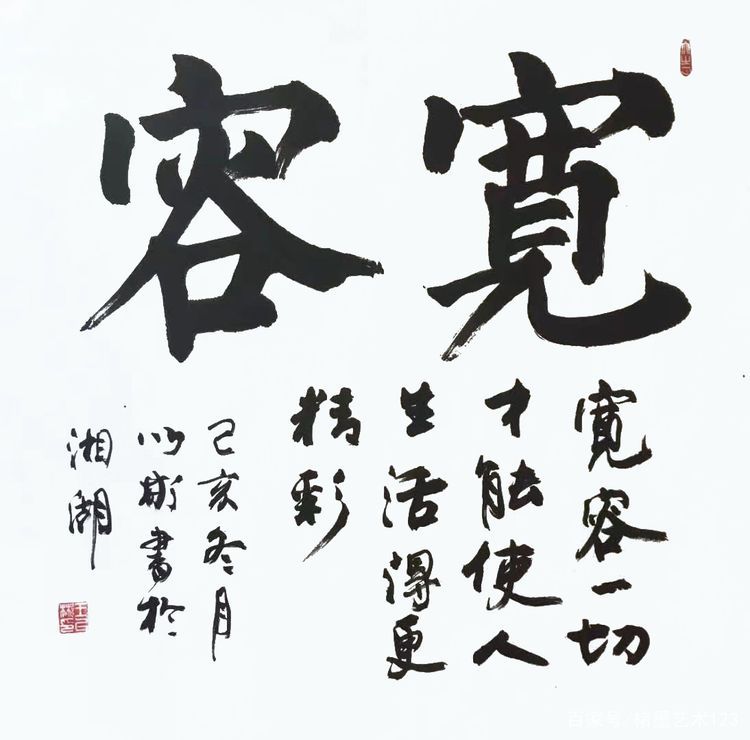 寬容
寬容一切
才能使人
生活得更
精彩
己亥冬月
以書於
湘湖
百家号/艺术123